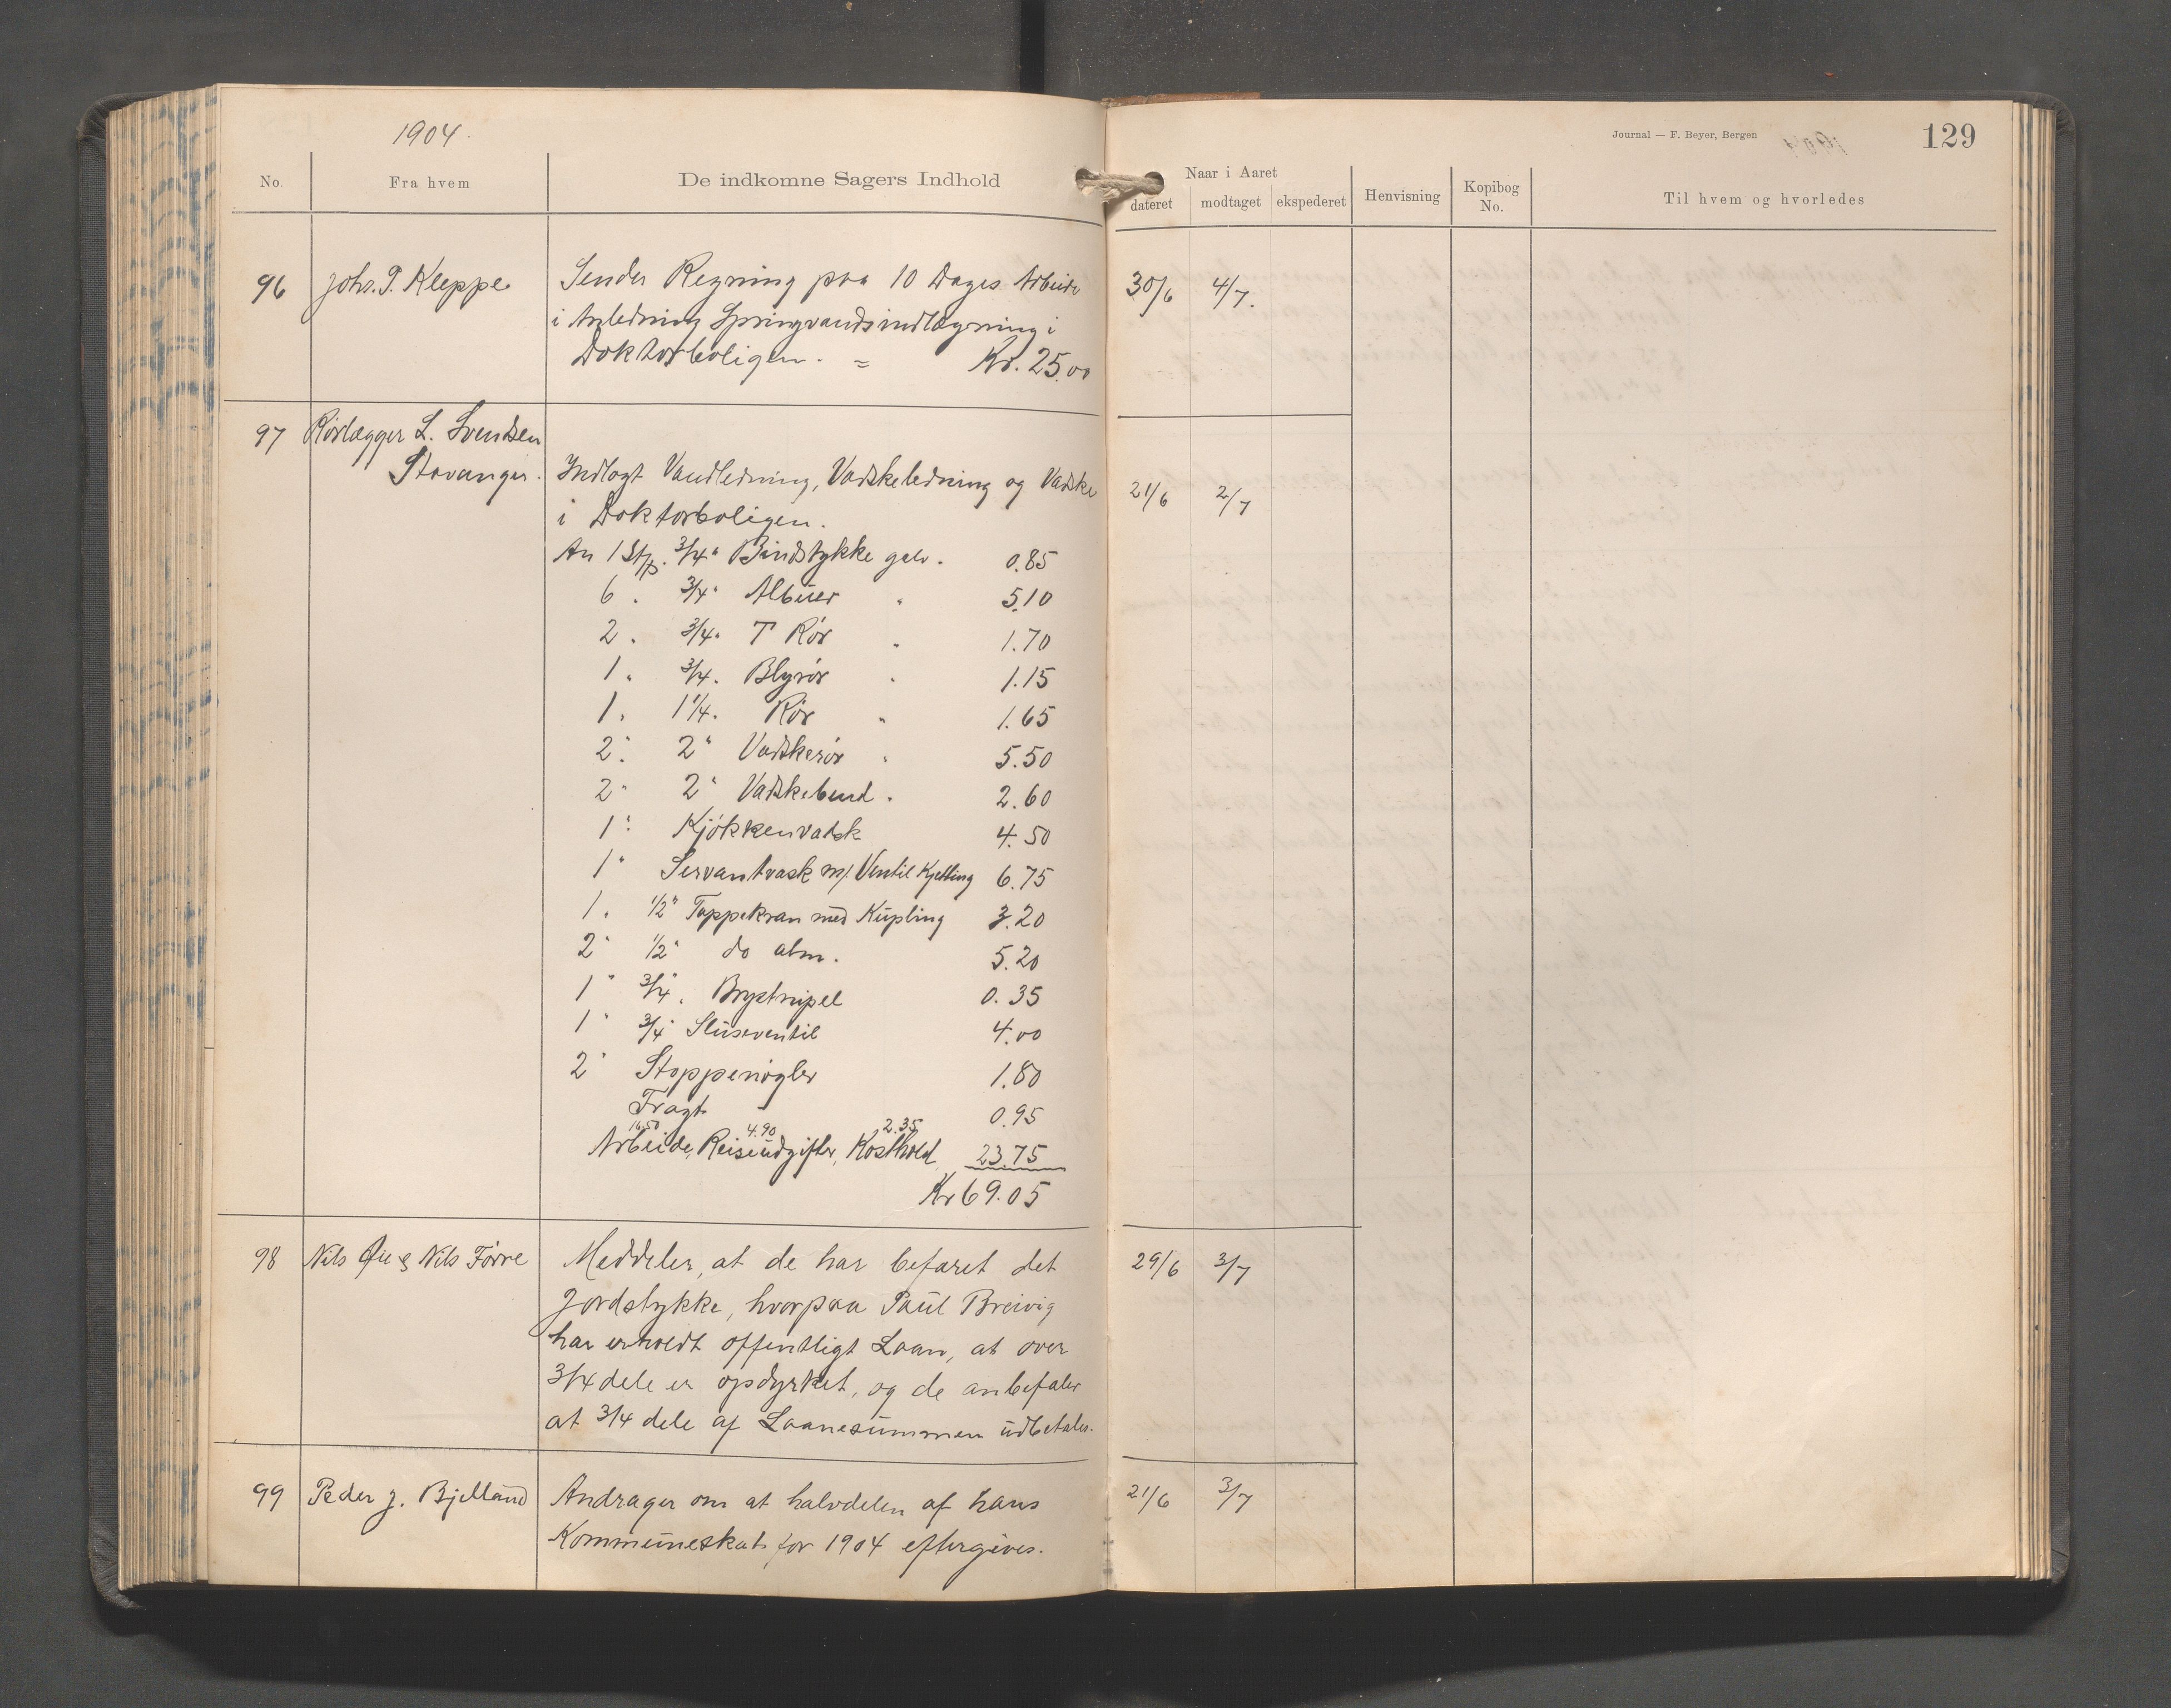 1904.
No. Fra hvem De indkomne Sagers Indhold
Journal — F. Beyer, Bergen 129
Naar i Aaret
dateret modtaget ekspederet Henvisning Kopibog No. Til hvem og hvorledes
96 Johs. P. Kleppe Sender Regning paa 10 Dages Arbeide 30/6 4/7.
i Anledning Springvandsindlægning i
Doktorboligen. = Kr. 25.00
97 Rørlægger L. Svendsen
Stavanger. Indlagt Vandledning, Vadskeledning og Vadske 21/6 2/7
i Doktorboligen.
An 1 Stp. 3/4" Bindstykke galv. 0.85
6 " 3/4" Albuer " 5.10
2 " 3/4" T Rør " 1.70
1 " 3/4" Blyrør " 1.15
1 " 1 1/4" Rør " 1.65
2 " 2" Vadskerør " 5.50
2 " 2" Vadskebend " 2.60
1 " Kjøkkenvadsk 4.50
1 " Servantvask m/ Ventil Kjetting 6.75
1 " 1/2" Tappekran med Kupling 3.20
2 " 1/2" do alm. 5.20
1 " 3/4" Brystnipel 0.35
1 " 3/4" Sluseventil 4.00
2 " Stoppenøgler 1.80
Fragt 0.95
16.50 4.90 2.35
Arbeide, Reiseudgifter, Kosthold 23.75
Kr 69.05
98 Nils Øie & Nils Førre Meddeler, at de har befaret det 29/6 3/7
Jordstykke, hvorpaa Paul Breivig
har erholdt offentligt Laan, at over
3/4 dele er opdyrket, og de anbefaler
at 3/4 dele af Laanesummen udbetales.
99 Peder J. Bjelland Andrager om at halvdelen af hans 21/6 3/7
Kommuneskat for 1904 eftergives.